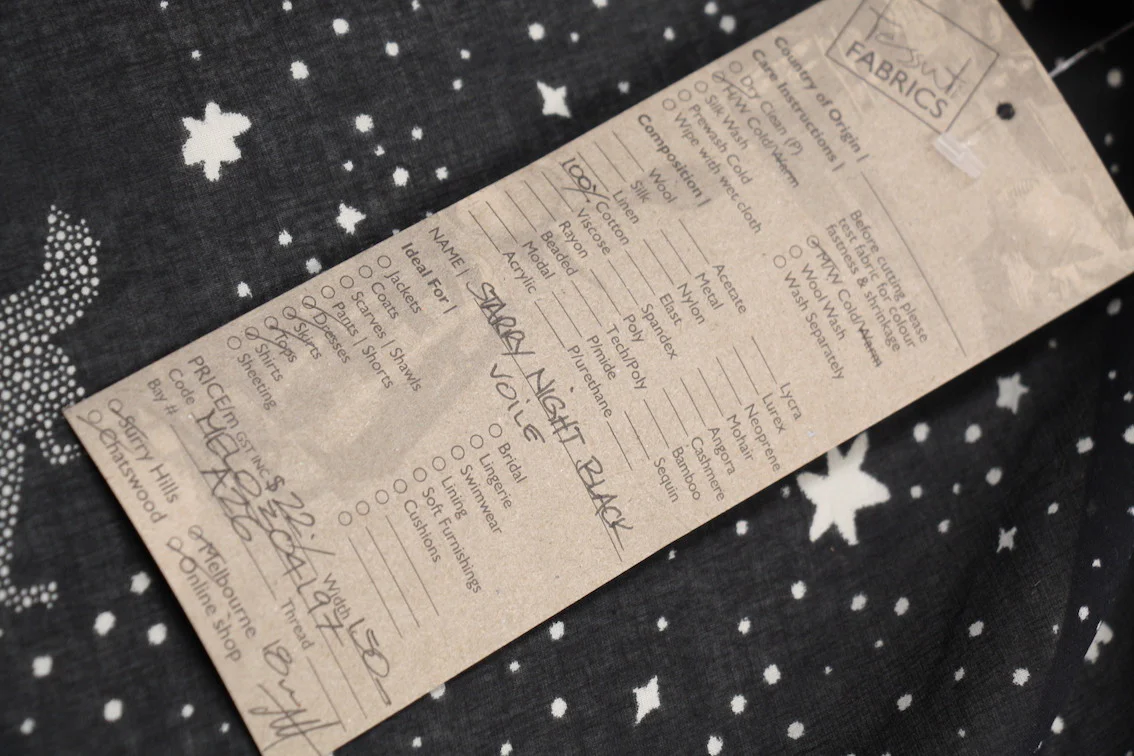 Tessuti
FABRICS
Country of Origin |
Care Instructions |
Dry Clean (P)
H/W Cold/Warm
Silk Wash
Prewash Cold
Wipe with wet cloth
Before cutting please
test fabric for colour
fastness & shrinkage
M/W Cold/Warm
Wool Wash
Wash Separately
Composition |
Wool
Silk
Linen
100% Cotton
Viscose
Rayon
Beaded
Modal
Acrylic
Acetate
Metal
Nylon
Elast
Spandex
Poly
Tech/Poly
P/mide
P/urethane
Lycra
Lurex
Neoprene
Mohair
Angora
Cashmere
Bamboo
Sequin
NAME | STARRY NIGHT BLACK
VOILE
Ideal For |
Jackets
Coats
Scarves | Shawls
Pants | Shorts
Dresses
Skirts
Tops
Shirts
Sheeting
Bridal
Lingerie
Swimwear
Lining
Soft Furnishings
Cushions
PRICE/m GST INC $ 22.- Width 150
Code
Bay # A226 Thread
Surry Hills
Chatswood
Melbourne
Online shop